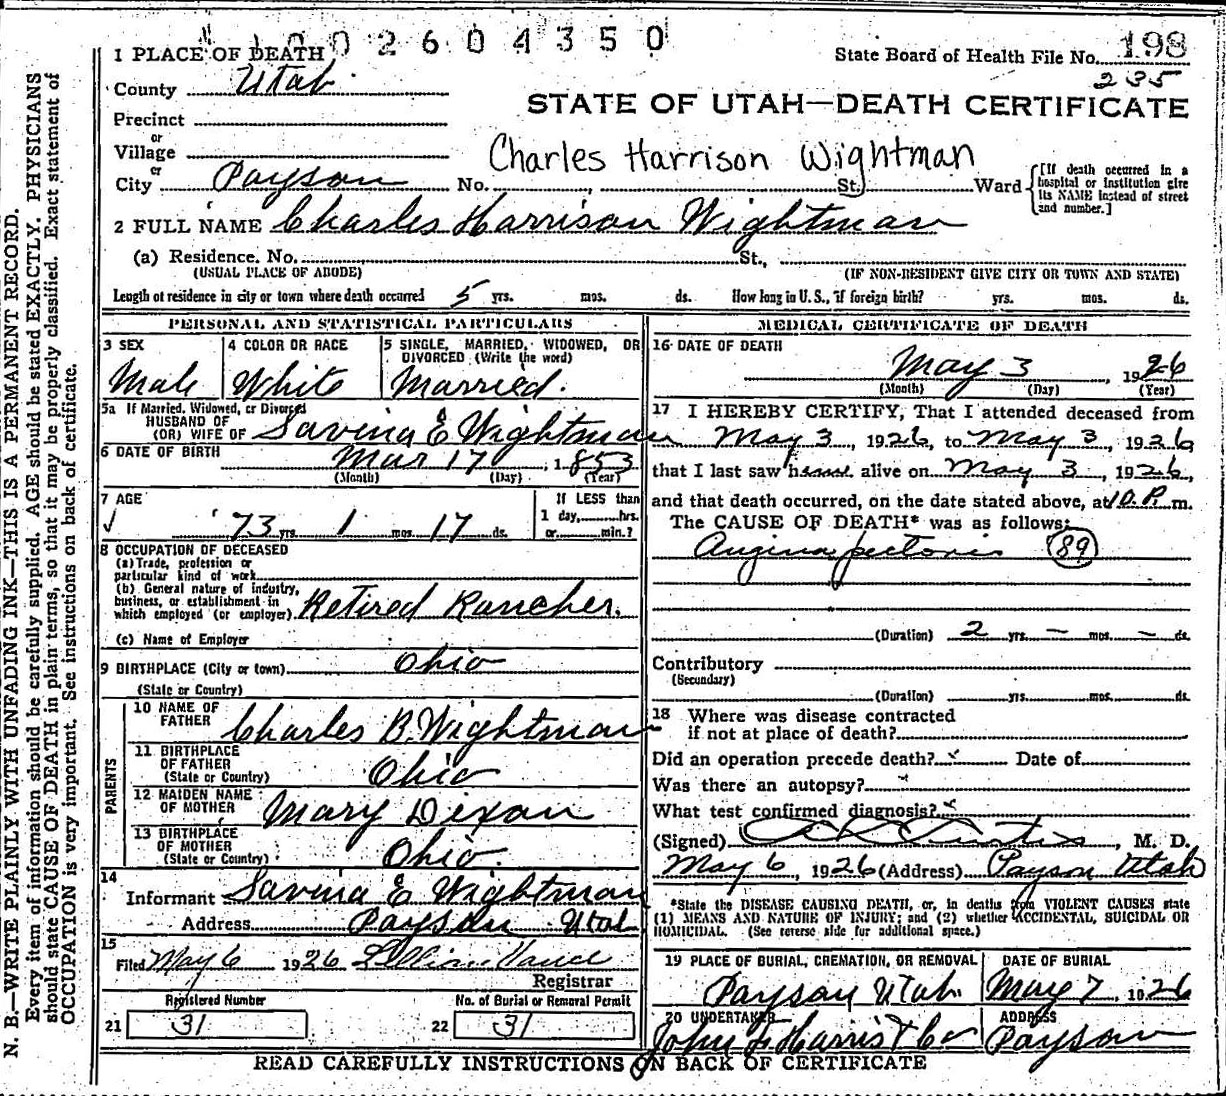 1 0 0 2 6 0 4 3 5 0
1 PLACE OF DEATH
State Board of Health File No. 198
235
County Utah
STATE OF UTAH—DEATH CERTIFICATE
Precinct
or
Village
Charles Harrison Wightman
or
City Payson No. , St. Ward
[If death occurred in a hospital or institution give its NAME instead of street and number.]
2 FULL NAME Charles Harrison Wightman
(a) Residence. No. St.,
(USUAL PLACE OF ABODE) (IF NON-RESIDENT GIVE CITY OR TOWN AND STATE)
Length of residence in city or town where death occurred 5 yrs. mos. ds. How long in U. S., if foreign birth? yrs. mos. ds.
PERSONAL AND STATISTICAL PARTICULARS
3 SEX
Male
4 COLOR OR RACE
White
5 SINGLE, MARRIED, WIDOWED, OR
DIVORCED (Write the word)
Married.
5a If Married, Widowed, or Divorced
HUSBAND OF
(OR) WIFE OF Savina E Wightman
6 DATE OF BIRTH Mar 17, 1853
(Month) (Day) (Year)
7 AGE
73 yrs. 1 mos. 17 ds.
If LESS than
1 day, hrs.
or min.?
8 OCCUPATION OF DECEASED
(a) Trade, profession or
particular kind of work
(b) General nature of industry,
business, or establishment in
which employed (or employer) Retired Rancher.
(c) Name of Employer
9 BIRTHPLACE (City or town) Ohio
(State or Country)
PARENTS
10 NAME OF
FATHER Charles B. Wightman
11 BIRTHPLACE
OF FATHER
(State or Country) Ohio
12 MAIDEN NAME
OF MOTHER Mary Dixon
13 BIRTHPLACE
OF MOTHER
(State or Country) Ohio.
14
Informant Savina E Wightman
Address Payson Utah
15
Filed May 6 1926
Registrar
Registered Number
21 31
No. of Burial or Removal Permit
22 31
MEDICAL CERTIFICATE OF DEATH
16 DATE OF DEATH
May 3, 1926
(Month) (Day) (Year)
17 I HEREBY CERTIFY, That I attended deceased from
May 3, 1926, to May 3, 1926
that I last saw alive on May 3, 1926,
and that death occurred, on the date stated above, at 10 P. m.
The CAUSE OF DEATH* was as follows:
Angina pectoris 89
(Duration) 2 yrs. — mos. — ds.
Contributory
(Secondary)
(Duration) yrs. mos. ds.
18 Where was disease contracted
if not at place of death?
Did an operation precede death? x Date of
Was there an autopsy?
What test confirmed diagnosis? x
(Signed) Curtis, M. D.
May 6, 1926 (Address) Payson Utah
*State the DISEASE CAUSING DEATH, or, in deaths from VIOLENT CAUSES state
(1) MEANS AND NATURE OF INJURY; and (2) whether ACCIDENTAL, SUICIDAL OR
HOMICIDAL. (See reverse side for additional space.)
19 PLACE OF BURIAL, CREMATION, OR REMOVAL
Payson Utah
DATE OF BURIAL
May 7 1926
20 UNDERTAKER
John F Harris & Co
ADDRESS
Payson
READ CAREFULLY INSTRUCTIONS ON BACK OF CERTIFICATE
N. B.—WRITE PLAINLY WITH UNFADING INK—THIS IS A PERMANENT RECORD.
Every item of information should be carefully supplied. AGE should be stated EXACTLY. PHYSICIANS
should state CAUSE OF DEATH in plain terms, so that it may be properly classified. Exact statement of
OCCUPATION is very important. See instructions on back of certificate.